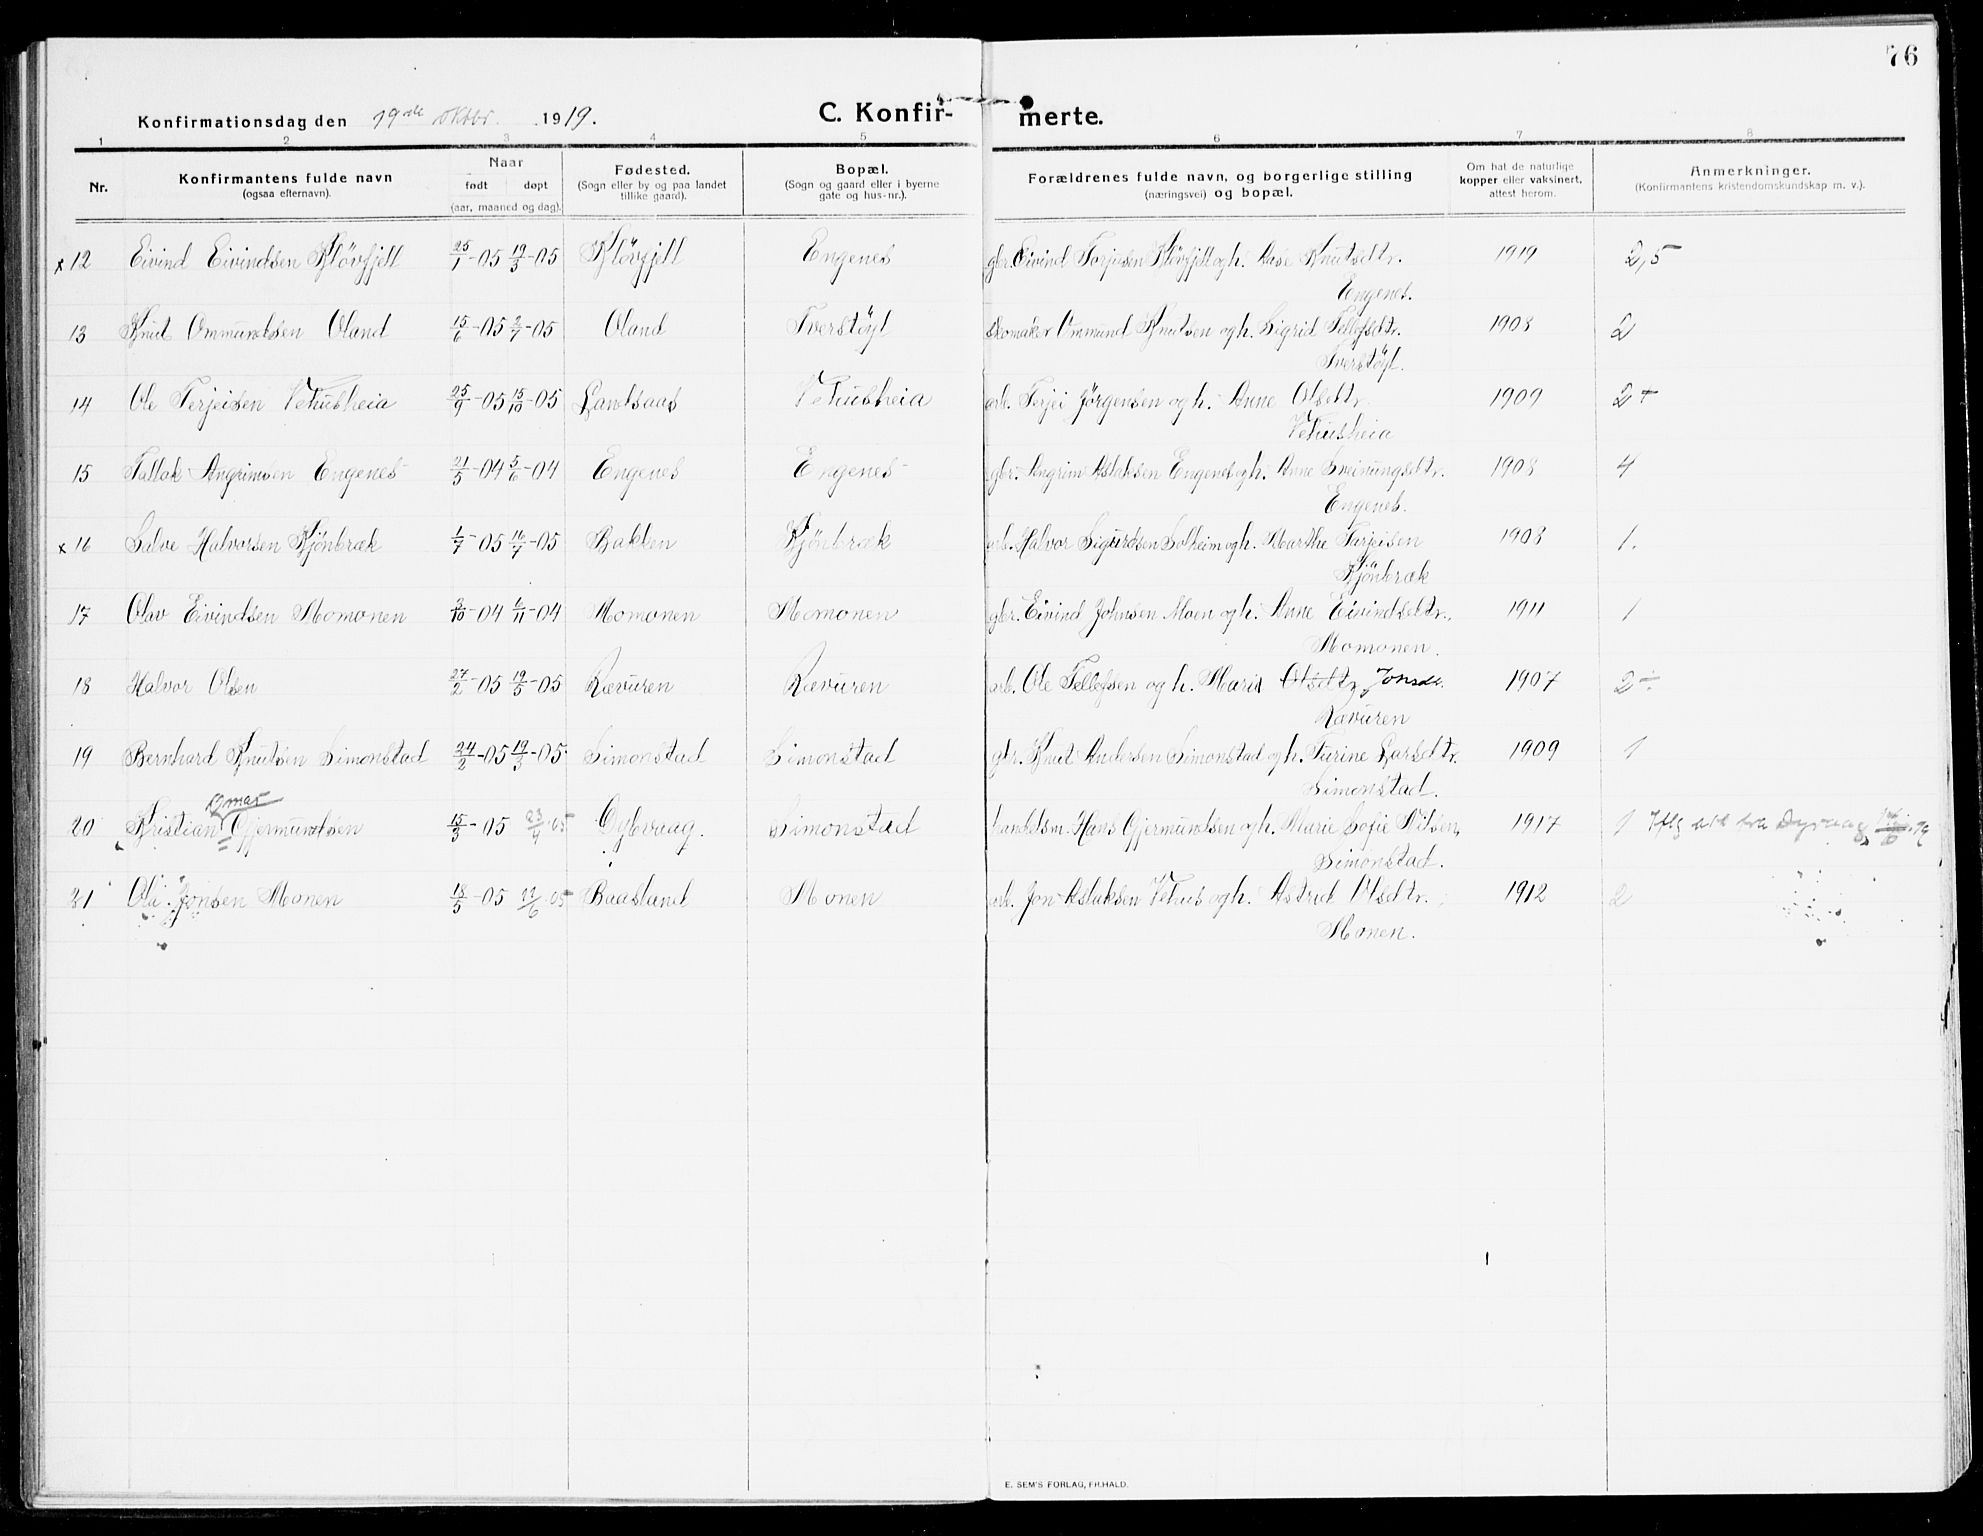 76
Konfirmationsdag den 19de oktbr. 1919.
C. Konfirmerte.
1 2 3 4 5 6 7 8
Nr.
Konfirmantens fulde navn
(ogsaa efternavn).
Naar
født døpt
(aar, maaned og dag).
Fødested.
(Sogn eller by og paa landet
tillike gaard).
Bopæl.
(Sogn og gaard eller i byerne
gate og hus-nr.).
Forældrenes fulde navn, og borgerlige stilling
(næringsvei) og bopæl.
Om hat de naturlige
kopper eller vaksinert,
attest herom.
Anmerkninger.
(Konfirmantens kristendomskundskap m. v.).
x 12 Eivind Eivindsen Kløvfjell 25/1-05 19/3-05 Kløvfjell Engenes gbr. Eivind Terjesen Kløvfjell og h. Aase Knutsdtr. 1919 2,5
Engenes.
13 Knut Ommundsen Oland 15/6-05 2/7-05 Oland Tverstöyl skomaker Ommund Knutsen og h. Sigrid Tellefsdtr. 1908 2
Tverstöyl.
14 Ole Terjeisen Vehusheia 25/9-05 15/10-05 Landsaas Vehusheia arb. Terjei Jörgensen og h. Anne Olsdtr. 1909 2+
Vehusheia
15 Tallak Angrimsen Engenes 21/5-04 5/6-04 Engenes Engenes gbr. Angrim Aslaksen Engenes og h. Anne Sveinungsdtr. 1908 4
Engenes.
x 16 Salve Halvorsen Kjönbræk 1/7-05 16/7-05 Bakken Kjönbræk arb. Halvor Sigurdsen Solheim og h. Marthe Terjeisen 1908 1.
Kjönbræk
17 Olav Eivindsen Momonen 2/10-04 6/11-04 Momonen Momonen gbr. Eivind Johnsen Moen og h. Anne Eivindsdtr., 1911 1
Momonen.
18 Halvor Olsen 27/2-05 19/5-05 Rævuren Rævuren arb. Ole Tellefsen og h. Mari Olsdtr Jonsdr. 1907 2÷
Rævuren
19 Bernhard Knutsen Simonstad 24/2-05 19/3-05 Simonstad Simonstad gbr. Knut Andersen Simonstad og h. Turine Larsdtr. 1909 1
Simonstad.
20 Kristian Osmar Gjermundsen 15/3-05 23/4-05 Dybvaag. Simonstad handelsm. Hans Gjermundsen og h. Marie Sofie Nilsen, 1917 1 Iflg att fra Dypvaag
Simonstad.
21 Ola Jonsen Monen 18/5-05 22/6-05 Baasland Monen arb. Jon Aslaksen Vehus og h. Astrid Olsdtr. 1912 2
Monen.
E. SEM'S FORLAG, FR.HALD.